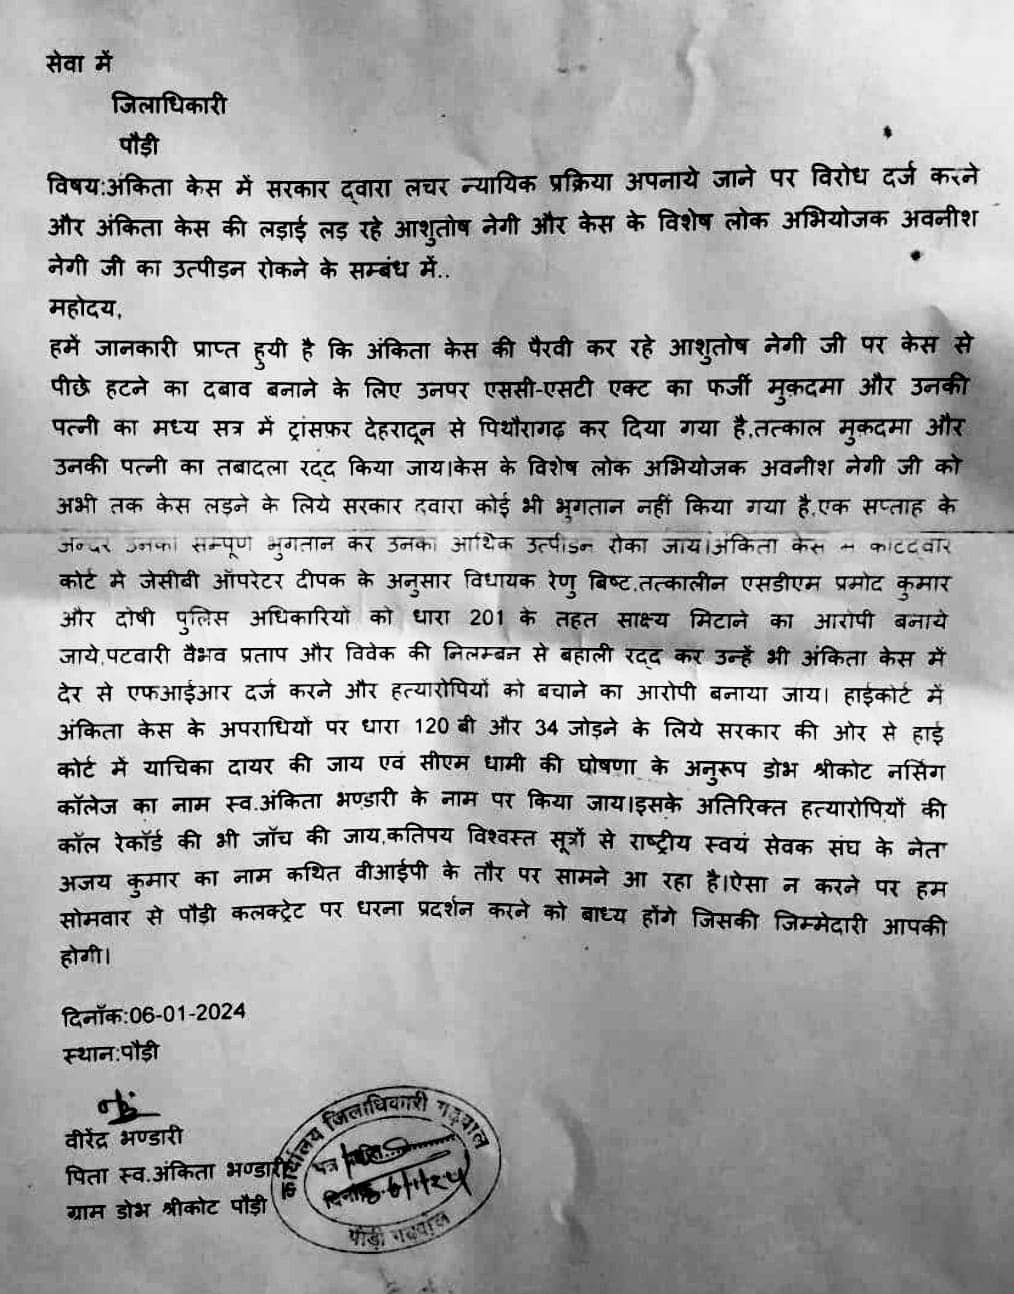 सेवा में
जिलाधिकारी
पौड़ी
विषय:अंकिता केस में सरकार द्वारा लचर न्यायिक प्रक्रिया अपनाये जाने पर विरोध दर्ज करने
और अंकिता केस की लड़ाई लड़ रहे आशुतोष नेगी और केस के विशेष लोक अभियोजक अवनीश
नेगी जी का उत्पीड़न रोकने के सम्बंध में..
महोदय,
हमें जानकारी प्राप्त हुयी है कि अंकिता केस की पैरवी कर रहे आशुतोष नेगी जी पर केस से
पीछे हटने का दबाव बनाने के लिए उनपर एससी-एसटी एक्ट का फर्जी मुक़दमा और उनकी
पत्नी का मध्य सत्र में ट्रांसफर देहरादून से पिथौरागढ़ कर दिया गया है,तत्काल मुक़दमा और
उनकी पत्नी का तबादला रद्द किया जाय।केस के विशेष लोक अभियोजक अवनीश नेगी जी को
अभी तक केस लड़ने के लिये सरकार दवारा कोई भी भुगतान नहीं किया गया है,एक सप्ताह के
अन्दर उनका सम्पूर्ण भुगतान कर उनका आर्थिक उत्पीड़न रोका जाय।अंकिता केस में कोटद्वार
कोर्ट मे जेसीबी ऑपरेटर दीपक के अनुसार विधायक रेणु बिष्ट,तत्कालीन एसडीएम प्रमोद कुमार
और दोषी पुलिस अधिकारियों को धारा 201 के तहत साक्ष्य मिटाने का आरोपी बनाये
जाये,पटवारी वैभव प्रताप और विवेक की निलम्बन से बहाली रद्द कर उन्हें भी अंकिता केस में
देर से एफआईआर दर्ज करने और हत्यारोपियों को बचाने का आरोपी बनाया जाय। हाईकोर्ट में
अंकिता केस के अपराधियों पर धारा 120 बी और 34 जोड़ने के लिये सरकार की ओर से हाई
कोर्ट में याचिका दायर की जाय एवं सीएम धामी की घोषणा के अनुरूप डोभ श्रीकोट नर्सिंग
कॉलेज का नाम स्व.अंकिता भण्डारी के नाम पर किया जाय।इसके अतिरिक्त हत्यारोपियों की
कॉल रेकॉर्ड की भी जाँच की जाय,कतिपय विश्वस्त सूत्रों से राष्ट्रीय स्वयं सेवक संघ के नेता
अजय कुमार का नाम कथित वीआईपी के तौर पर सामने आ रहा है।ऐसा न करने पर हम
सोमवार से पौड़ी कलक्ट्रेट पर धरना प्रदर्शन करने को बाध्य होंगे जिसकी जिम्मेदारी आपकी
होगी।
दिनाँक:06-01-2024
स्थान:पौड़ी
वीरेंद्र भण्डारी
पिता स्व.अंकिता भण्डारी
ग्राम डोभ श्रीकोट पौड़ी
कार्यालय जिलाधिकारी गढ़वाल
पत्र
दिनांक 6/1/24
पौड़ी गढ़वाल